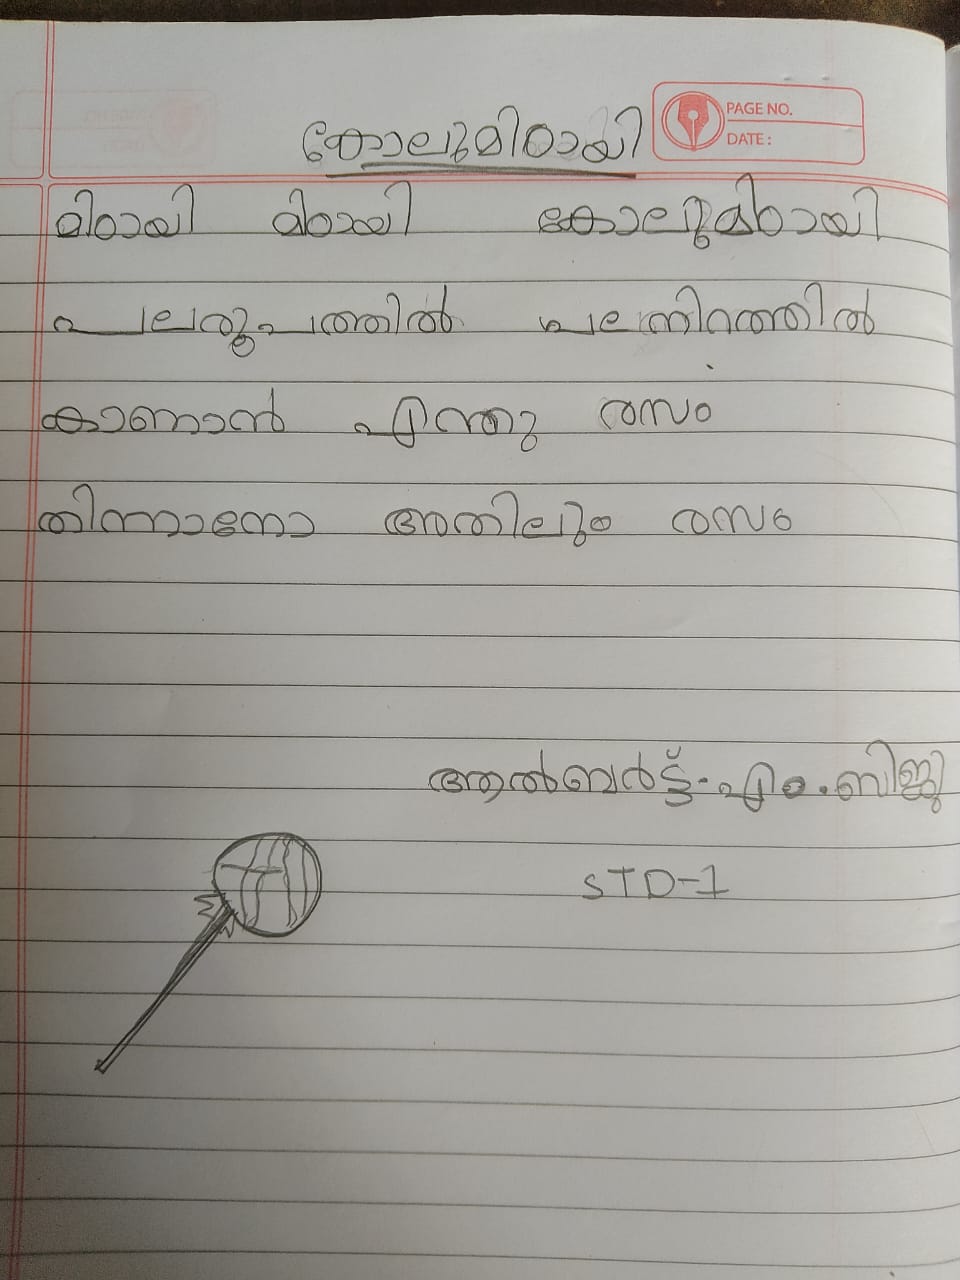 കോലുമിഠായി
PAGE NO.
DATE :
മിഠായി മിഠായി കോലുമിഠായി
പലരൂപത്തിൽ പലനിറത്തിൽ
കാണാൻ എന്തു രസം
തിന്നാനോ അതിലും രസം
ആൽബർട്ട്.എം.ബിജു
STD-1